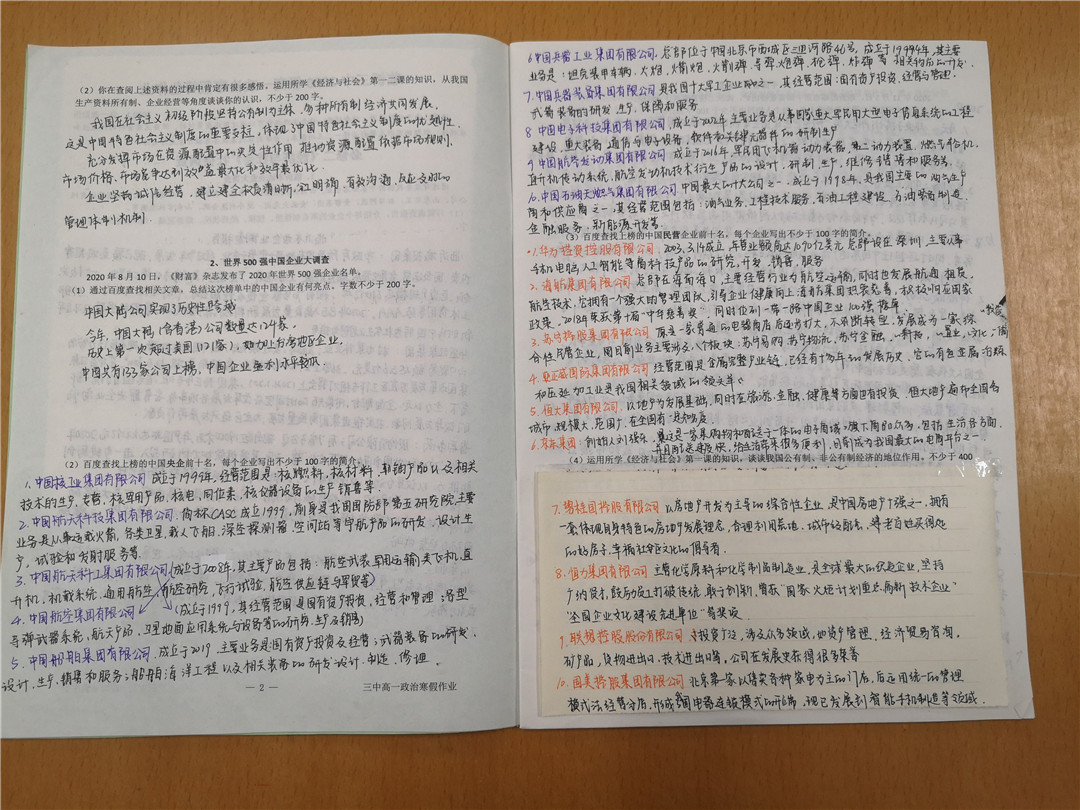 （2）你在查阅上述资料的过程中肯定有很多感悟，运用所学《经济与社会》第一二课的知识，从我
国生产资料所有制、企业经营等角度谈谈你的认识，不少于200字。
我国在社会主义初级阶段坚持公有制为主体、多种所有制经济共同发展。
这是中国特色社会主义制度的重要支柱，体现了中国特色社会主义制度的优越性。
充分发挥市场在资源配置中的决定性作用，推动资源配置依据市场规则、
市场价格、市场竞争达到效益最大化和效率最优化。
企业坚持诚信经营，建立健全权责清晰、
管理体制机制
2、世界500强中国企业大调查
2020年8月10日，《财富》杂志发布了2020年世界500强企业名单。
（1）通过百度查找相关文章，总结这次榜单中的中国企业有何亮点，字数不少于200字。
中国大陆公司实现了历史性跨越
今年，中国大陆（含香港）公司数量达124家，
历史上第一次超过美国（121家），加上台湾地区企业，
中国共有133家公司上榜，中国企业盈利水平较低
（2）百度查找上榜的中国央企前十名，每个企业写出不少于100字的简介。
1.中国核工业集团有限公司 成立于1999年，经营范围是：核燃料，核材料，军铀产品以及相关
技术的生产，专营，核军用产品，核电，同位素，核仪器设备的生产销售等。
2.中国航天科技集团有限公司，简称CASC成立1999，前身是我国国防部第五研究院，主要
业务是从事运载火箭，各类卫星，载人飞船，深空探测器，空间站等宇航产品的研发，设计，生
产，试验和发射服务等。
3.中国航天科工集团有限公司（成立于2008年，其主要产品包括：航空武装、军用运输类飞机，直
升机，机载系统，通用航空，航空研究，飞行试验，航空供应链与军贸等）
4.中国航空集团有限公司（成立于1999，其经营范围是国有资产投资，经营和管理；各型
导弹武器系统，航天产品，卫星地面应用系统与设备等的研发，生产及销售）
5.中国船舶集团有限公司，成立于2019，主要业务是国有资产投资及经营；武器装备的研发，
设计，生产，销售和服务；船舶海洋工程以及相关装备的研发设计，制造，修理。
— 2 —
三中高一政治寒假作业
6中国兵器工业集团有限公司，总部位于中国北京市西城区三里河路46号，成立于1999年，其主要
业务是：坦克装甲车辆、火炮、火箭炮、火箭弹、导弹、炮弹、枪弹、炸弹等相关物品的计划。
7.中国兵器装备集团有限公司是我国十大军工企业的之一，其经营范围：国有资产投资，经营与管理。
武器装备的研发，生产，保障和服务
8 中国电子科技集团有限公司，成立于2002年，主要业务是从事国家重大军民用大型电子信息系统的工程
建设，重大装备，通信与电子设备，软件和关键元器件的研制生产
9中国航空发动集团有限公司 成立于2016年，军民用飞机器动力装置，第二动力装置，燃气轮机，
直升机传动系统，航空发动机技术衍生产品的设计，研制，生产，维修，销售和服务等。
10.中国石油天然气集团有限公司 中国最大的大公司之一，成立于1998年，是我国主要的油气生产
商和供应商之一，其经营范围包括：油气业务，工程技术服务，石油工程建设，石油装备制造，
金融服务，新能源开发等。
（3）百度查找上榜的中国民营企业前十名，每个企业写出不少于100字的简介。
1.华为投资控股有限公司，2003.3.14成立，年营业额高达1090亿美元，总部设在深圳，主要从事
手机电脑人工智能等高科技产品的研究，开发，销售，服务
2.海航集团有限公司 总部在海南海口，主要经营行业为航空运输，同时也发展航道，租赁，
航空技术，它拥有一个强大的管理团队，引导企业健康向上，海航集团积极慈善，积极响应国家
政策。2018年荣获第十届“中华慈善奖”，同时位列一带一路中国企业100强榜单
3.苏宁控股集团有限公司 原是一家普通的电器商店后逐步扩大，不断的转型，发展成为一家综
合性民营企业，现目前业务主要涉及八个板块：苏宁易购，苏宁物流，苏宁金融，置业，文化，
4.正威国际集团有限公司 经营范围是金属完整产业链，已经有十多年的发展历史，它的有色金属冶炼
和压延加工业是我国相关领域的领头羊
5.恒大集团有限公司，以地产为发展基础，同时在旅游，金融，健康等方面也有投资，恒大地产遍布全国各
城市，规模大，范围广，在全国有一定知名度
6.京东集团：创始人刘强东，是一家集购物和配送于一体的电子商城，旗下商品众多，包括生活各方面，
并且配送速度快，给生活带来很多便利，目前成为我国最大的电商平台之一
（4）运用所学《经济与社会》第一课的知识，谈谈我国公有制、非公有制经济的地位作用。不少于400
7.碧桂园控股有限公司 以房地产开发为主导的综合性企业，是中国房地产十强之一，拥有
一套体现自身特色的房地产发展理念，合理利用荒地，城市经融，替老百姓买得起
的好房子，幸福社区文化的倡导者。
8.恒力集团有限公司 主营化学原料和化学制品制造业，是全球最大的织造企业，坚持
产纺良材，既后勇立打破传统，敢于创新，曾获“国家火炬计划重点高新技术企业”
“全国企业文化建设先进单位”等奖项
9.联想控股股份有限公司 投资广泛，涉及众多领域，地资产管理，经济贸易咨询，
矿产品，货物进出口，技术进出口等，公司在发展史获得很多荣誉
10.国美控股集团有限公司 北京第一家以售卖各种家电为主的门店，后运用统一的管理
模式去经营分店，形成我国电器连锁模式的开端，现已发展到智能手机制造等领域。